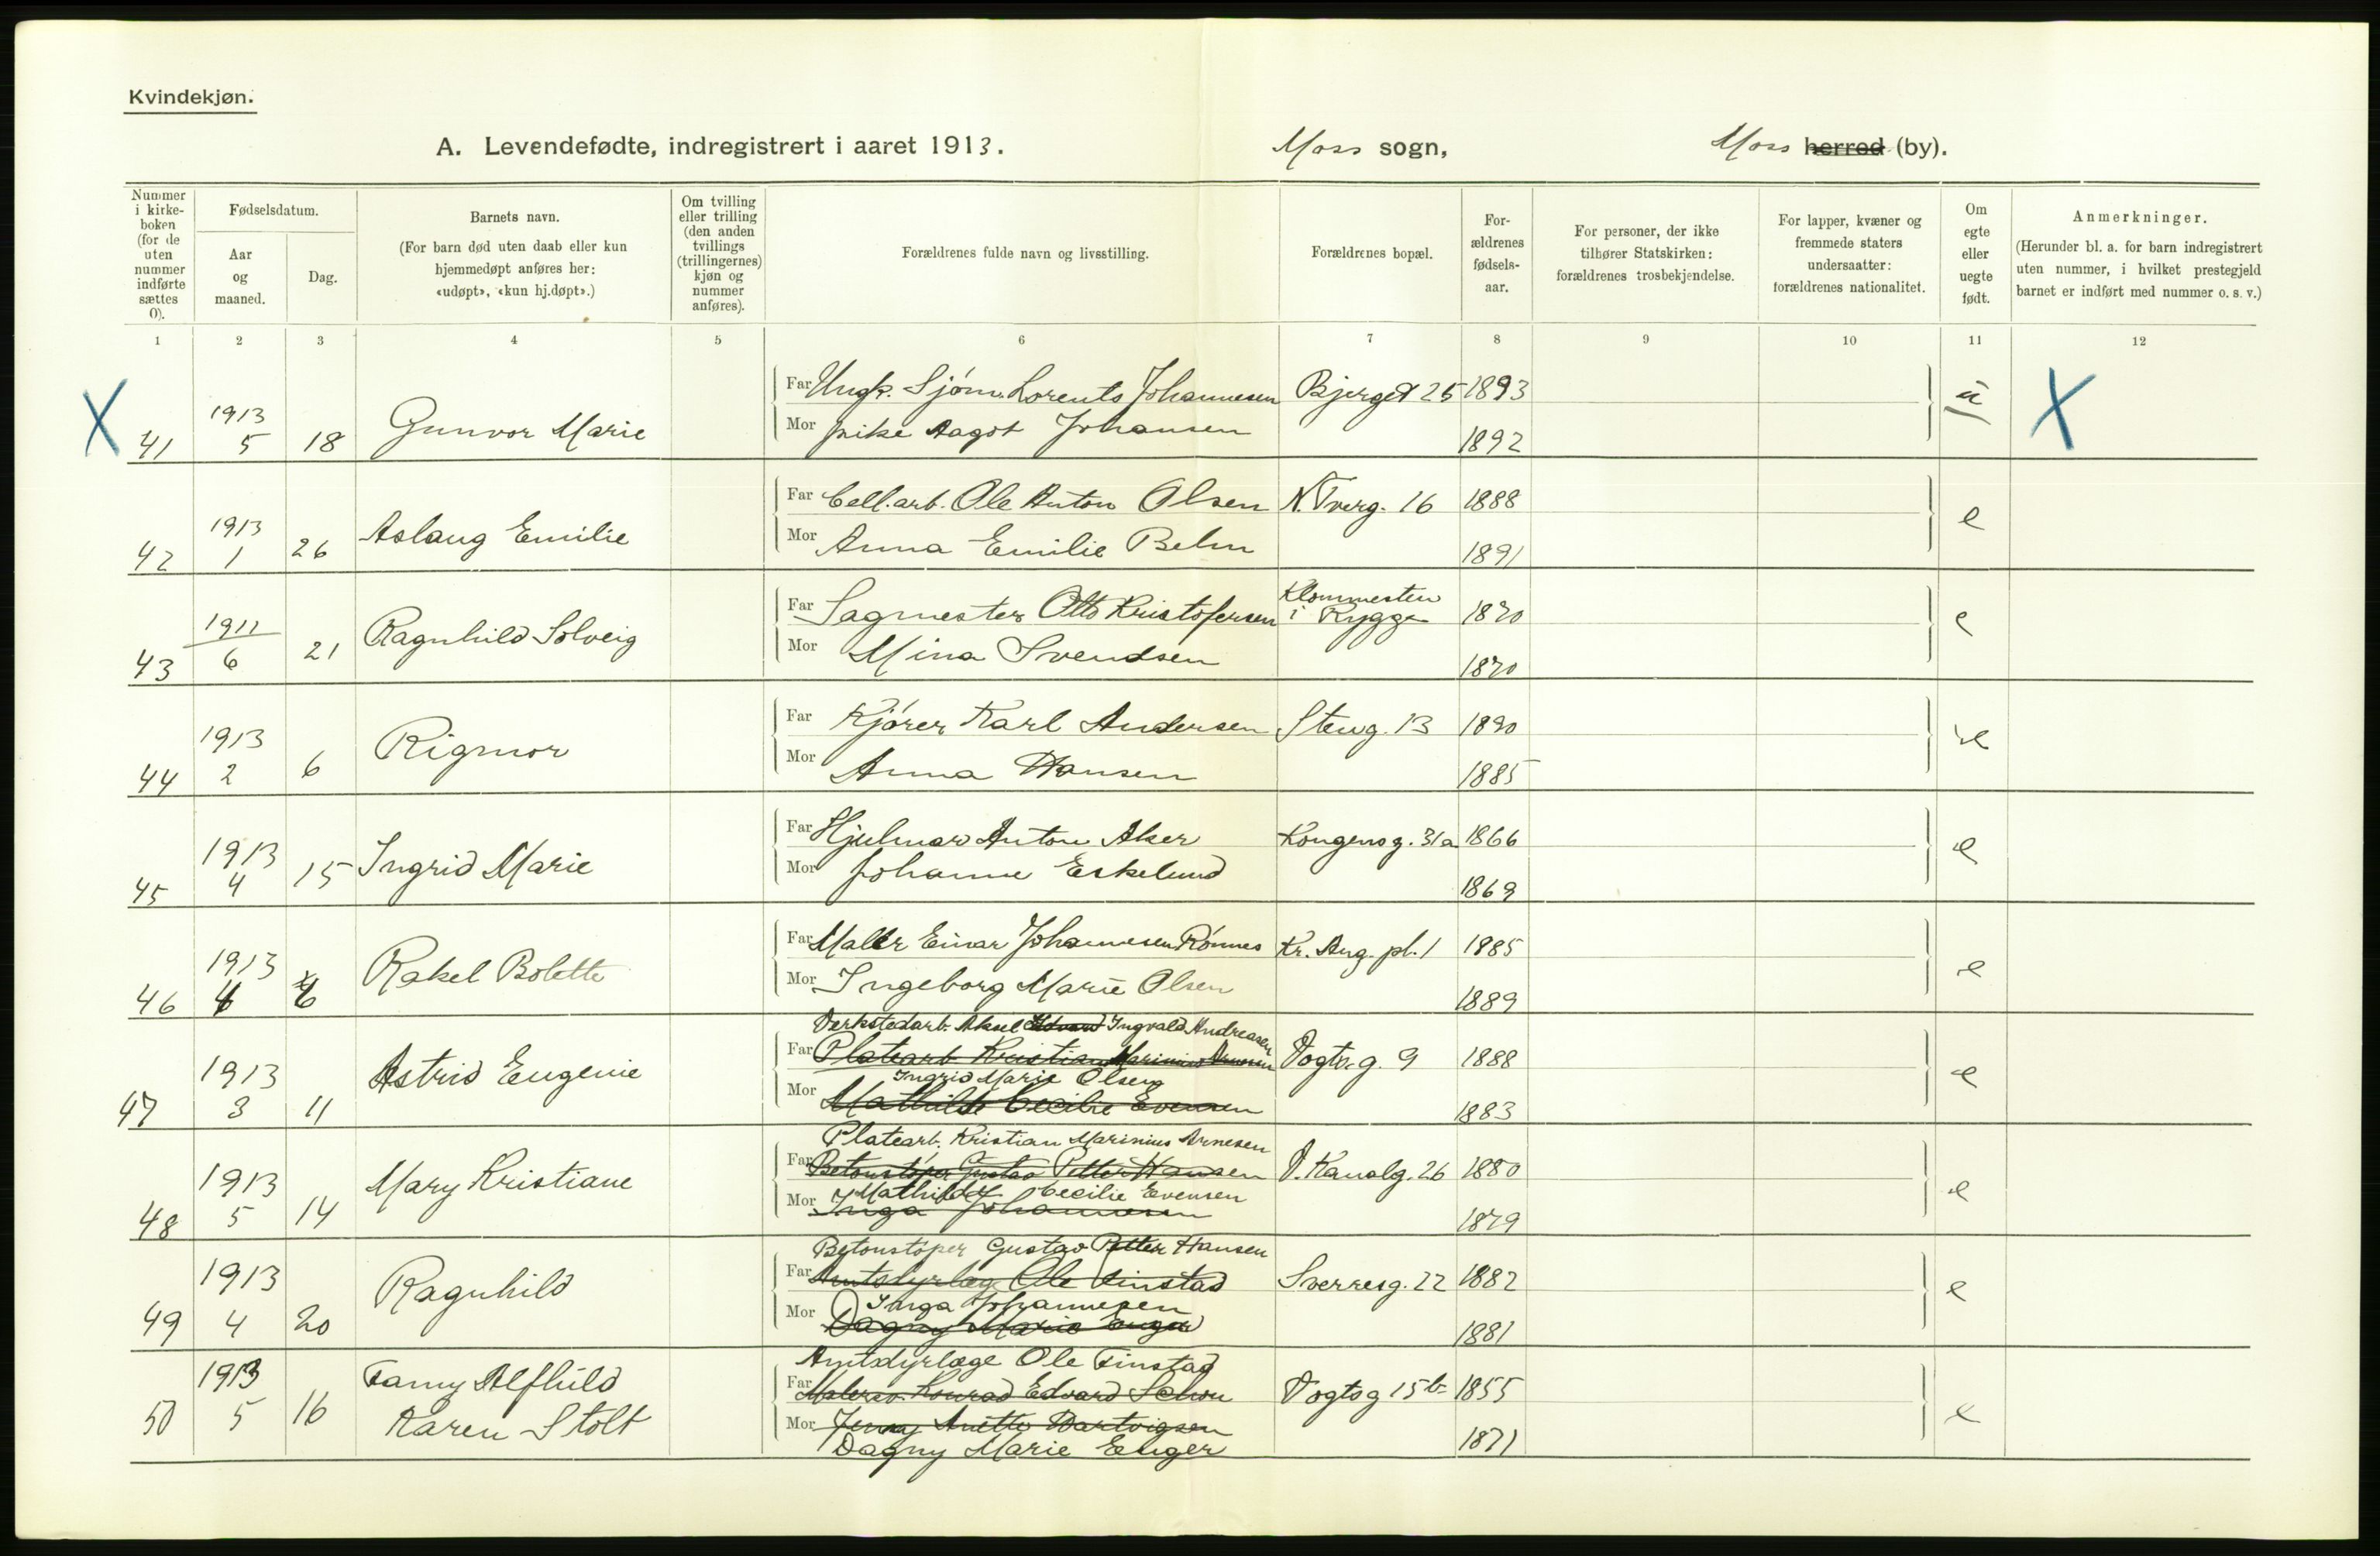 Kvindekjøn.
A. Levendefødte, indregistrert i aaret 1913. Moss sogn, Moss herred (by).
Nummer i kirke-boken (for de uten nummer indførte sættes 0).
Fødselsdatum.
Aar og maaned.
Dag.
Barnets navn.
(For barn død uten daab eller kun hjemmedøpt anføres her: «udøpt», «kun hj.døpt».)
Om tvilling eller trilling (den anden tvillings (trillingernes) kjøn og nummer anføres).
Forældrenes fulde navn og livsstilling.
Forældrenes bopæl.
For-ældrenes fødsels-aar.
For personer, der ikke tilhører Statskirken: forældrenes trosbekjendelse.
For lapper, kvæner og fremmede staters undersaatter: forældrenes nationalitet.
Om egte eller uegte født.
Anmerkninger.
(Herunder bl. a. for barn indregistrert uten nummer, i hvilket prestegjeld barnet er indført med nummer o. s. v.)
1 2 3 4 5 6 7 8 9 10 11 12
X 41 1913 5 18 Gunvor Marie Far Ungk. Sjøm. Lorents Johannesen Bjerget 25 1893 u X
Mor Aagot Johansen 1892
42 1913 1 26 Aslaug Emilie Far Cell.arb. Ole Anton Olsen N. Tverg. 16 1888 e
Mor Anna Emilie Belm 1891
43 1911 6 21 Ragnhild Solveig Far Sagmester Otto Kristofersen Klommesten i Rygge 1870 e
Mor Mina Svendsen 1870
44 1913 2 6 Rigmor Far Kjører Karl Andersen Steng. 13 1890 e
Mor Anna Hansen 1885
45 1913 4 15 Ingrid Marie Far Hjalmar Anton Aker Kongensg. 31a 1866 e
Mor Johanne Eskelund 1869
46 1913 4 6 Rakel Bolette Far Maler Einar Johannesen Rønnes Kr. Aug. pl. 1 1885 e
Mor Ingeborg Marie Olsen 1889
Verkstedarb. Aksel Edvard Ingvald Andreasen
47 1913 3 11 Astrid Eugenie Far Platearb Kristian Marinius Arnesen Vogtsg. 9 1888 e
Ingrid Marie Olsen
Mor Mathilde Cecilie Evensen 1883
Platearb. Kristian Marinius Arnesen
48 1913 5 14 Mary Kristiane Far Betonstøper Gustav Petter Hansen V. Kanalg. 26 1880 e
Mathilde Cecilie Evensen
Mor Inga Johannesen 1879
Betonstøper Gustav Petter Hansen
49 1913 4 20 Ragnhild Far Amtsdyrlæge Ole Finstad Sverresg. 22 1882 e
Inga Johannesen
Mor Dagny Marie Enger 1881
Amtsdyrlæge Ole Finstad
50 1913 5 16 Fanny Alfhild Karen Stolt Far Malersv. Konrad Edvard Schou Vogtsg 15b 1855 e
Mor Jenny Anette Hartvigsen 1871
Dagny Marie Enger